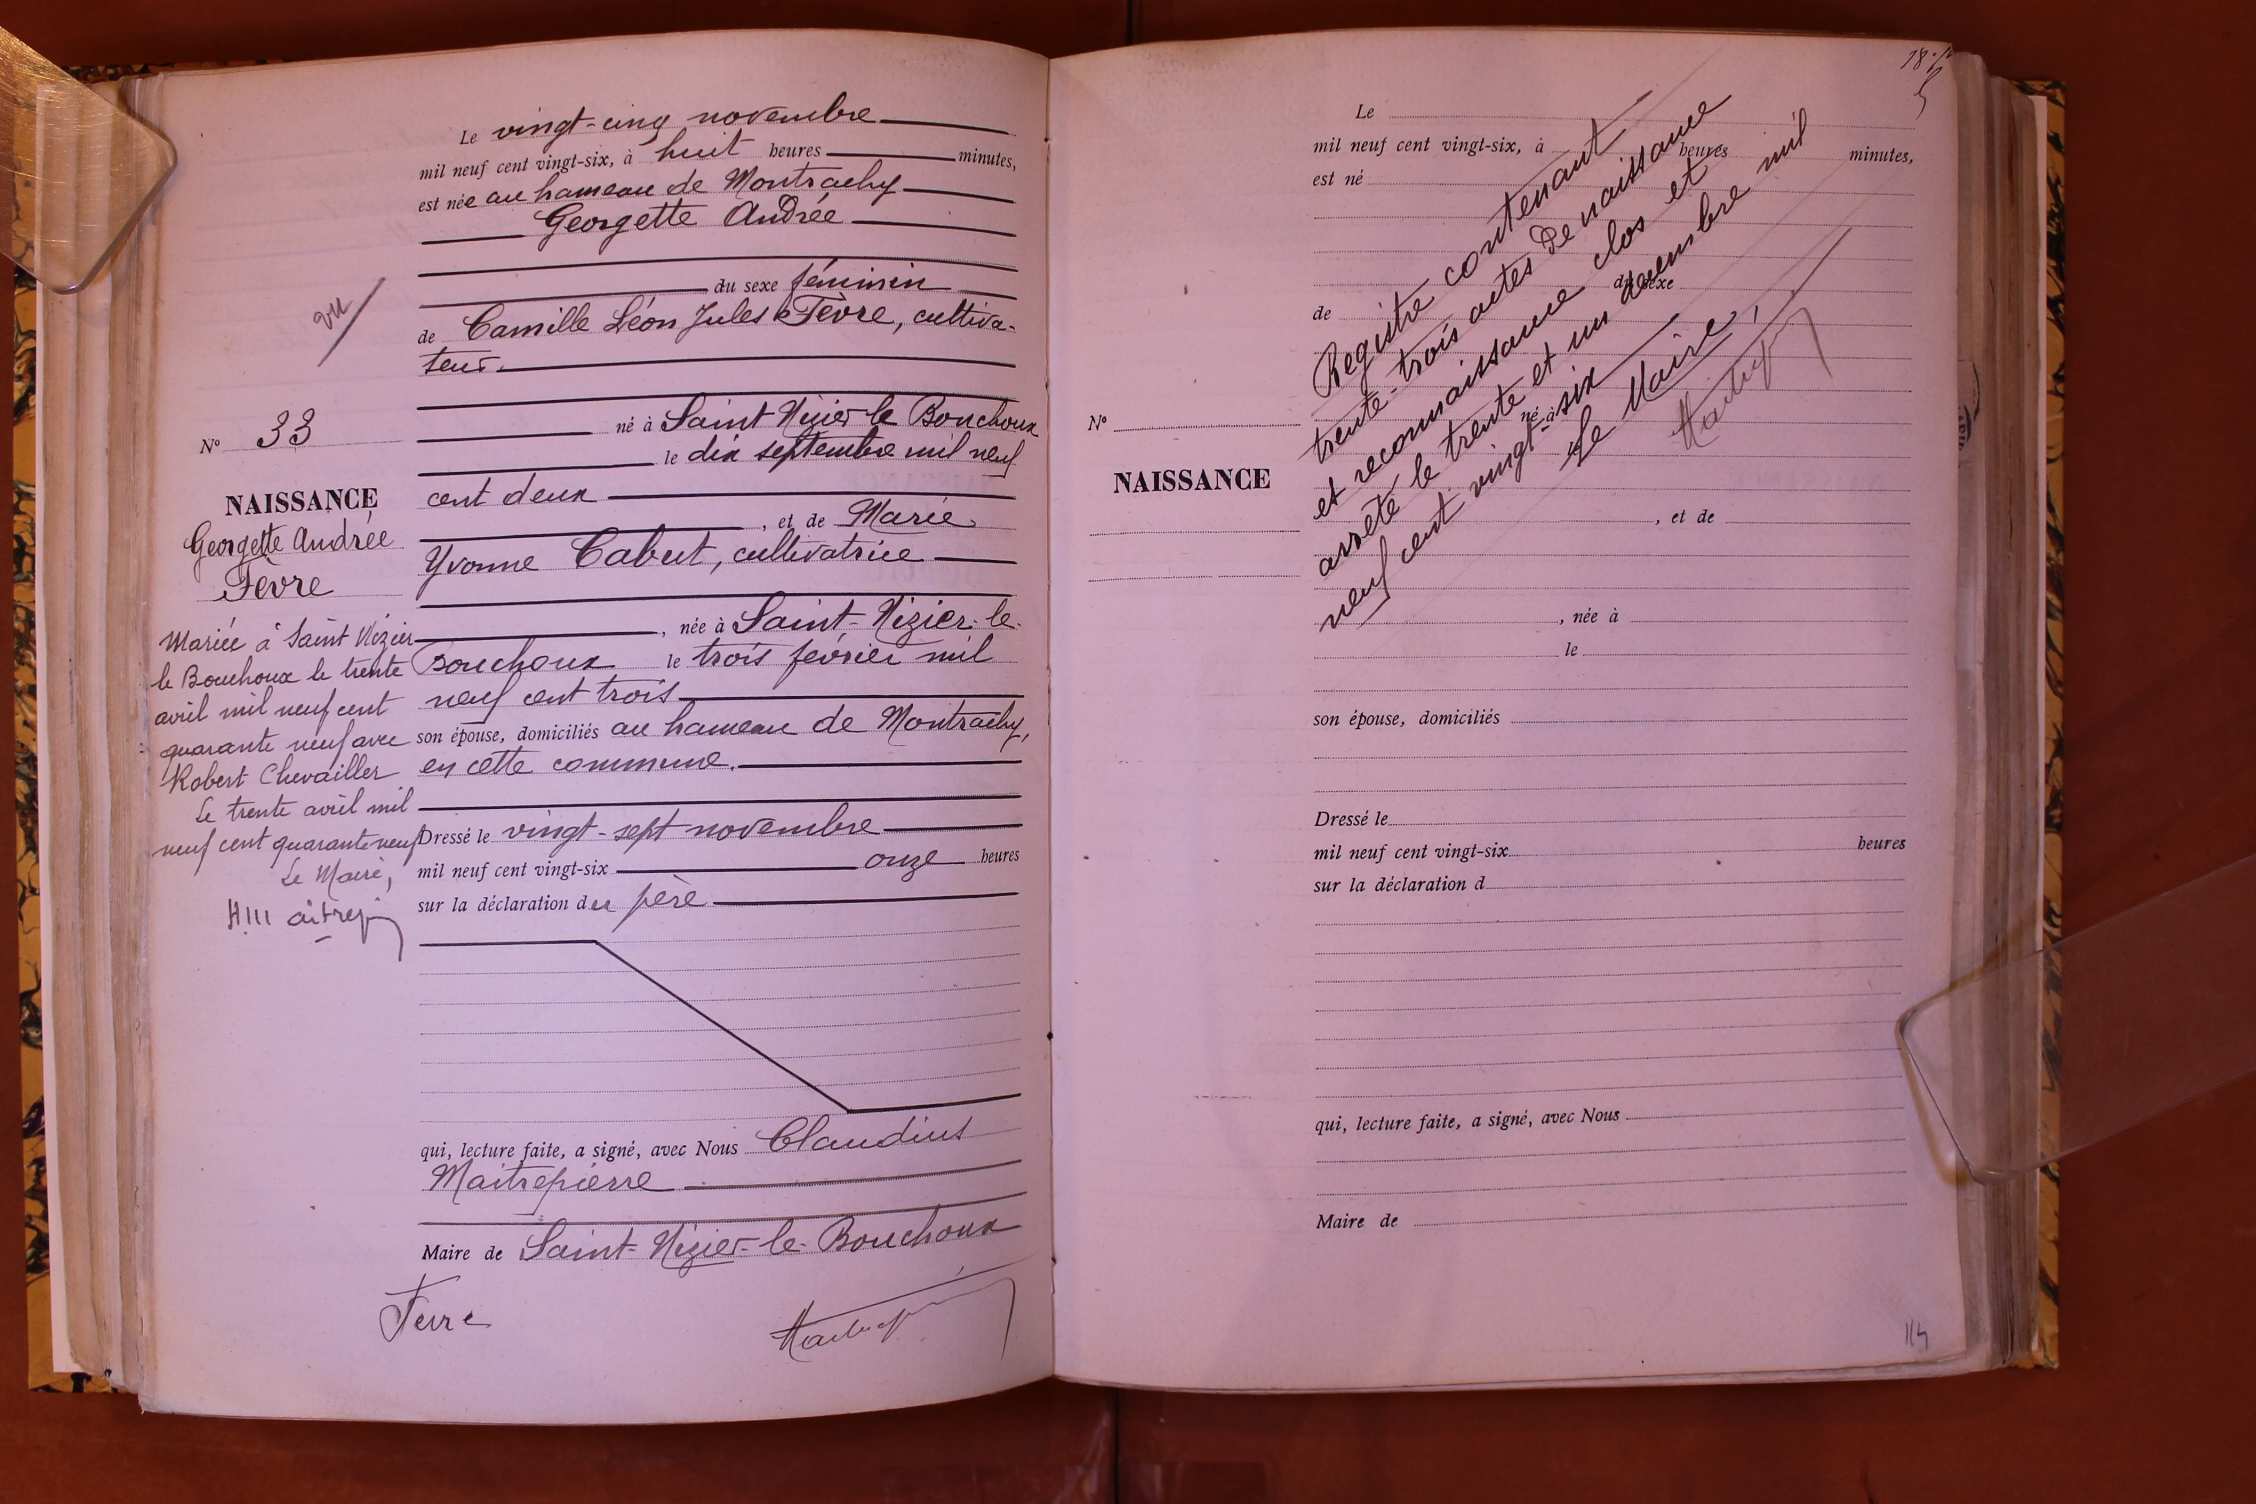 Le vingt-cinq novembre
mil neuf cent vingt-six, à huit heures minutes,
est née au hameau de Montrachy
Georgette Andrée
du sexe féminin
de Camille Léon Jules Fèvre, cultiva-
teur.
né à Saint Nizier-le Bouchoux
le dix septembre mil neuf
cent deux
, et de Marie
Yvonne Cabut, cultivatrice
, née à Saint-Nizier-le-
Bouchoux le trois février mil
neuf cent trois
son épouse, domiciliés au hameau de Montrachy,
en cette commune.
Dressé le vingt-sept novembre
mil neuf cent vingt-six onze heures
sur la déclaration du père
qui, lecture faite, a signé, avec Nous Claudius
Maitrepierre
Maire de Saint-Nizier-le-Bouchoux
Fevre
vu
N° 33
NAISSANCE
Georgette Andrée
Fèvre
Mariée à Saint Nizier
le Bouchoux le trente
avril mil neuf cent
quarante neuf avec
Robert Chevailler
Le trente avril mil
neuf cent quarante neuf
Le Maire,
Le
mil neuf cent vingt-six, à heures minutes,
est né
du sexe
de
né à
N°
NAISSANCE
, et de
, née à
le
son épouse, domiciliés
Dressé le
mil neuf cent vingt-six heures
sur la déclaration d
qui, lecture faite, a signé, avec Nous
Maire de
Registre contenant
trente-trois actes de naissance
et reconnaissance clos et
arrêté le trente et un décembre mil
neuf cent vingt-six
Le Maire,